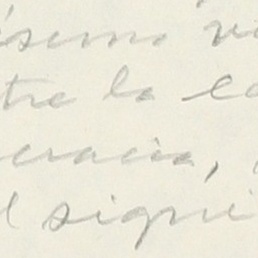 ésimo
tre la
cracia,
signi